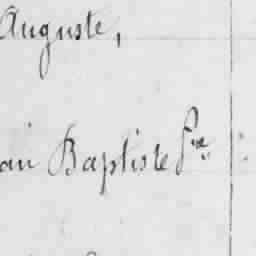 Auguste,
an Baptiste